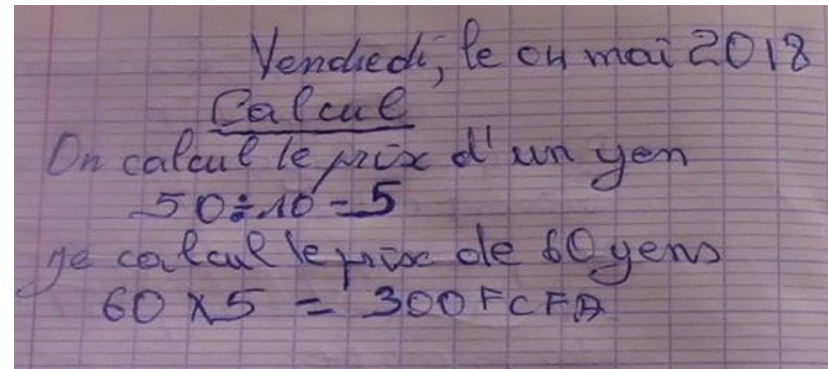 Vendredi, le 04 mai 2018
Calcul
On calcul le prix d'un yen
50÷10=5
je calcul le prix de 60 yens
60 x 5 = 300 FCFA